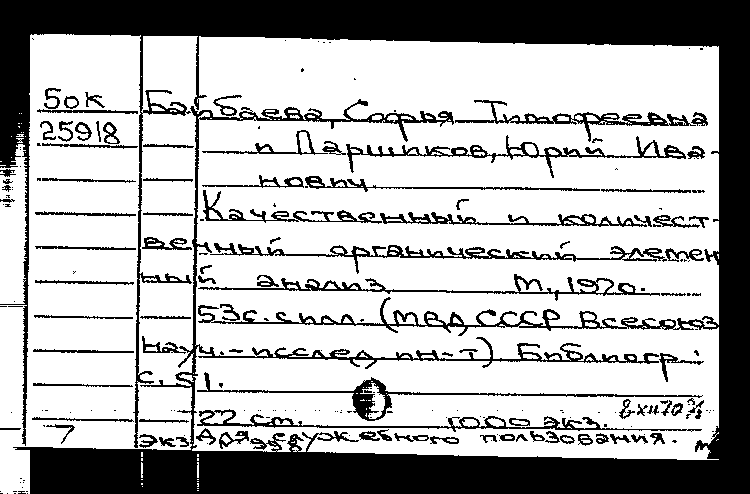 50к
25918
Байбаева, Софья Тимофеевна
и Паршиков, Юрий Ива-
нович.
Качественный и количест-
венный органический элемен
ный анализ М., 1970.
53с. с илл. (МВД СССР Всесоюз
науч.-исслед. ин-т) Библиогр.:
с. 51.
22 см. 1000 экз.
7 экз Для служебного пользования.